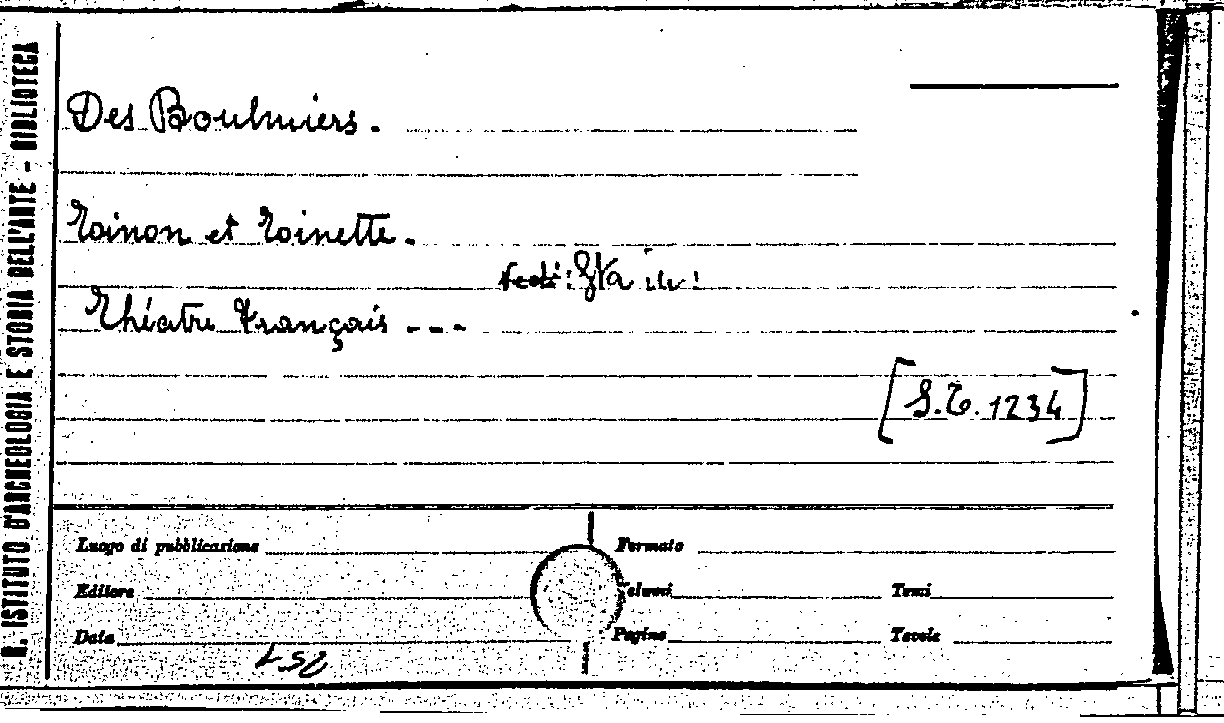 R. ISTITUTO D'ARCHEOLOGIA E STORIA DELL'ARTE - BIBLIOTECA
Des Boulmiers.
Toinon et Toinette.
Théatre français ---
[S.T. 1234]
Luogo di pubblicazione
Formato
Editore
Volumi
Tomi
Data
Pagine
Tavole